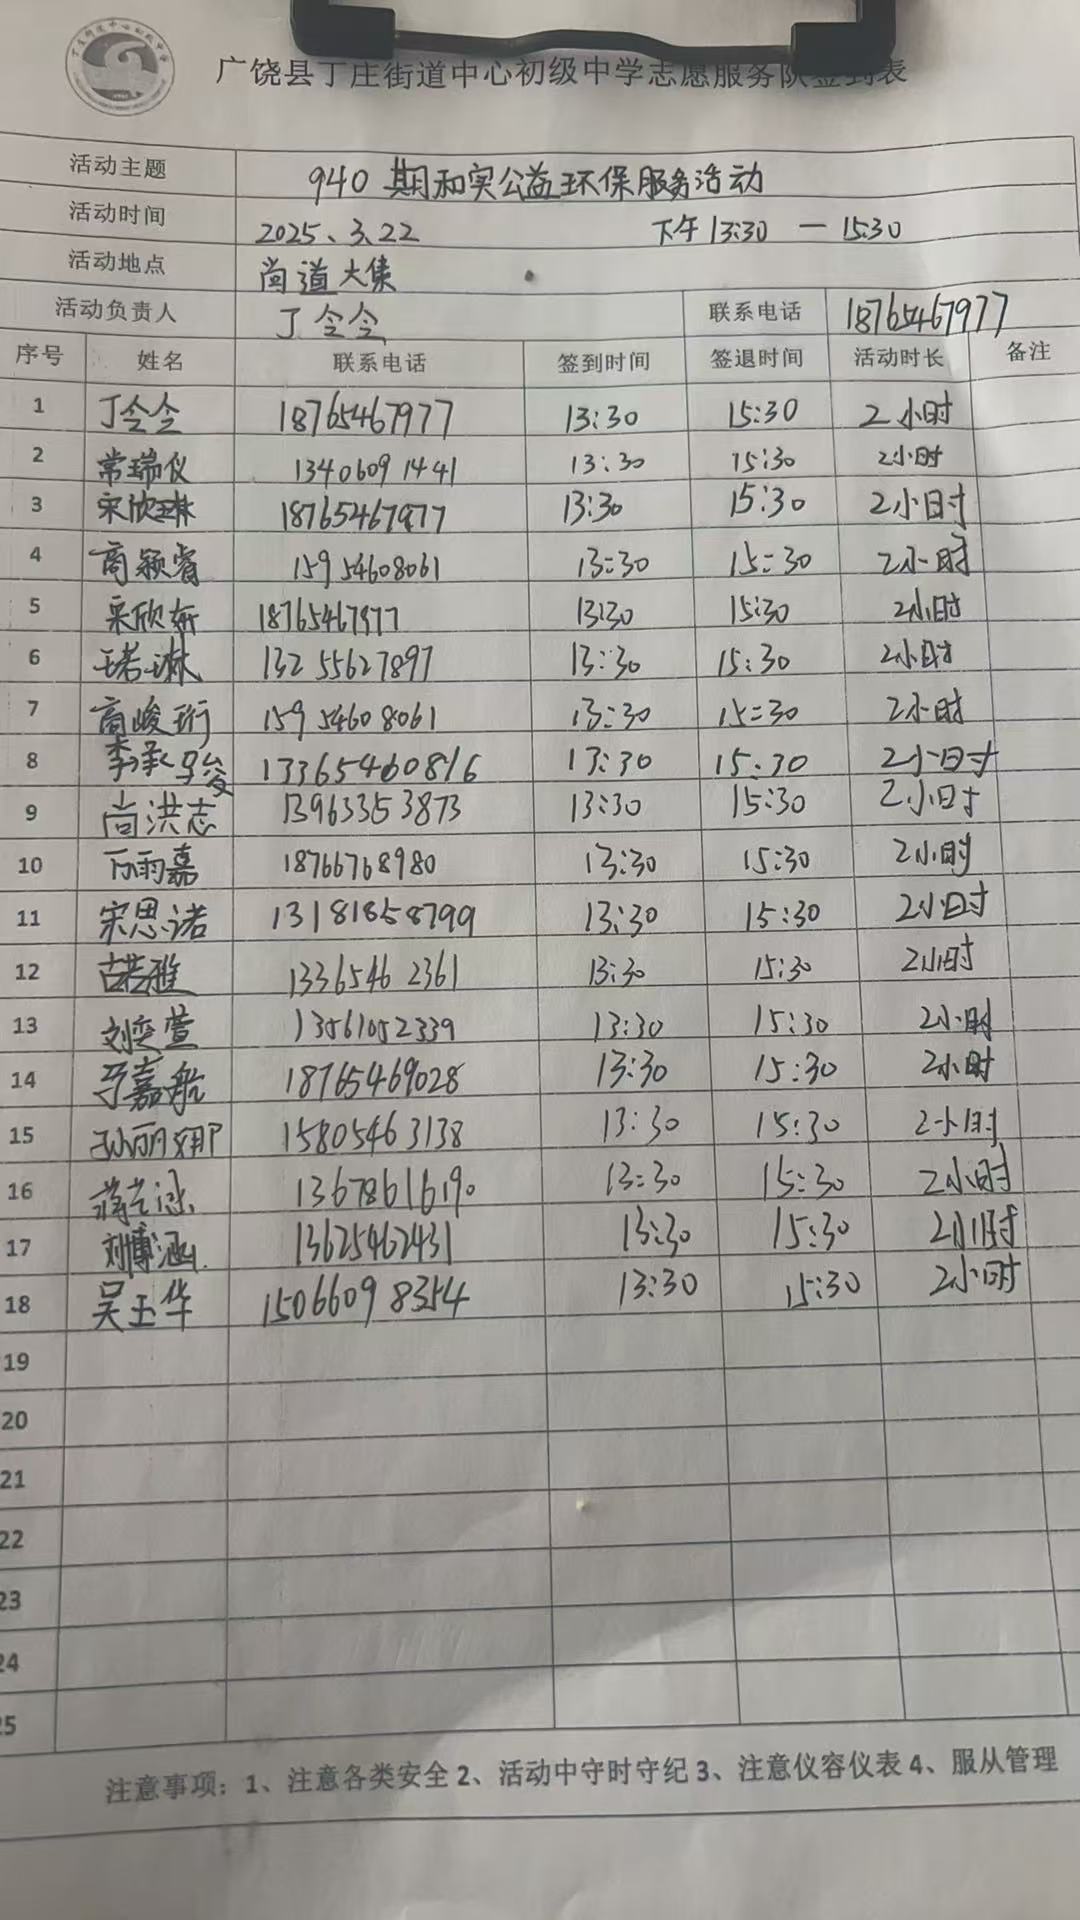 广饶县丁庄街道中心初级中学志愿服务队签到表
活动主题 940期和实公益环保服务活动
活动时间 2025.3.22 下午13:30 — 15:30
活动地点 尚道大集
活动负责人 丁令令 联系电话 18765467977
序号 姓名 联系电话 签到时间 签退时间 活动时长 备注
1 丁令令 18765467977 13:30 15:30 2小时
2 常瑞仪 13406091441 13:30 15:30 2小时
3 宋欣琳 18765467977 13:30 15:30 2小时
4 商颖睿 15954608061 13:30 15:30 2小时
5 宋欣妍 18765467977 13:30 15:30 2小时
6 13255627897 13:30 15:30 2小时
7 商峻珩 15954608061 13:30 15:30 2小时
8 李承骏 13365460816 13:30 15:30 2小时
9 尚洪志 13963353873 13:30 15:30 2小时
10 雨嘉 18766768980 13:30 15:30 2小时
11 宋思诺 13181858799 13:30 15:30 2小时
12 古若雅 13365462361 13:30 15:30 2小时
13 刘奕萱 13561052339 13:30 15:30 2小时
14 嘉航 18765469028 13:30 15:30 2小时
15 孙丽娜 15805463138 13:30 15:30 2小时
16 13678616190 13:30 15:30 2小时
17 刘博涵 13625462431 13:30 15:30 2小时
18 吴玉华 15066098354 13:30 15:30 2小时
19
20
21
22
23
24
25
注意事项：1、注意各类安全2、活动中守时守纪3、注意仪容仪表4、服从管理